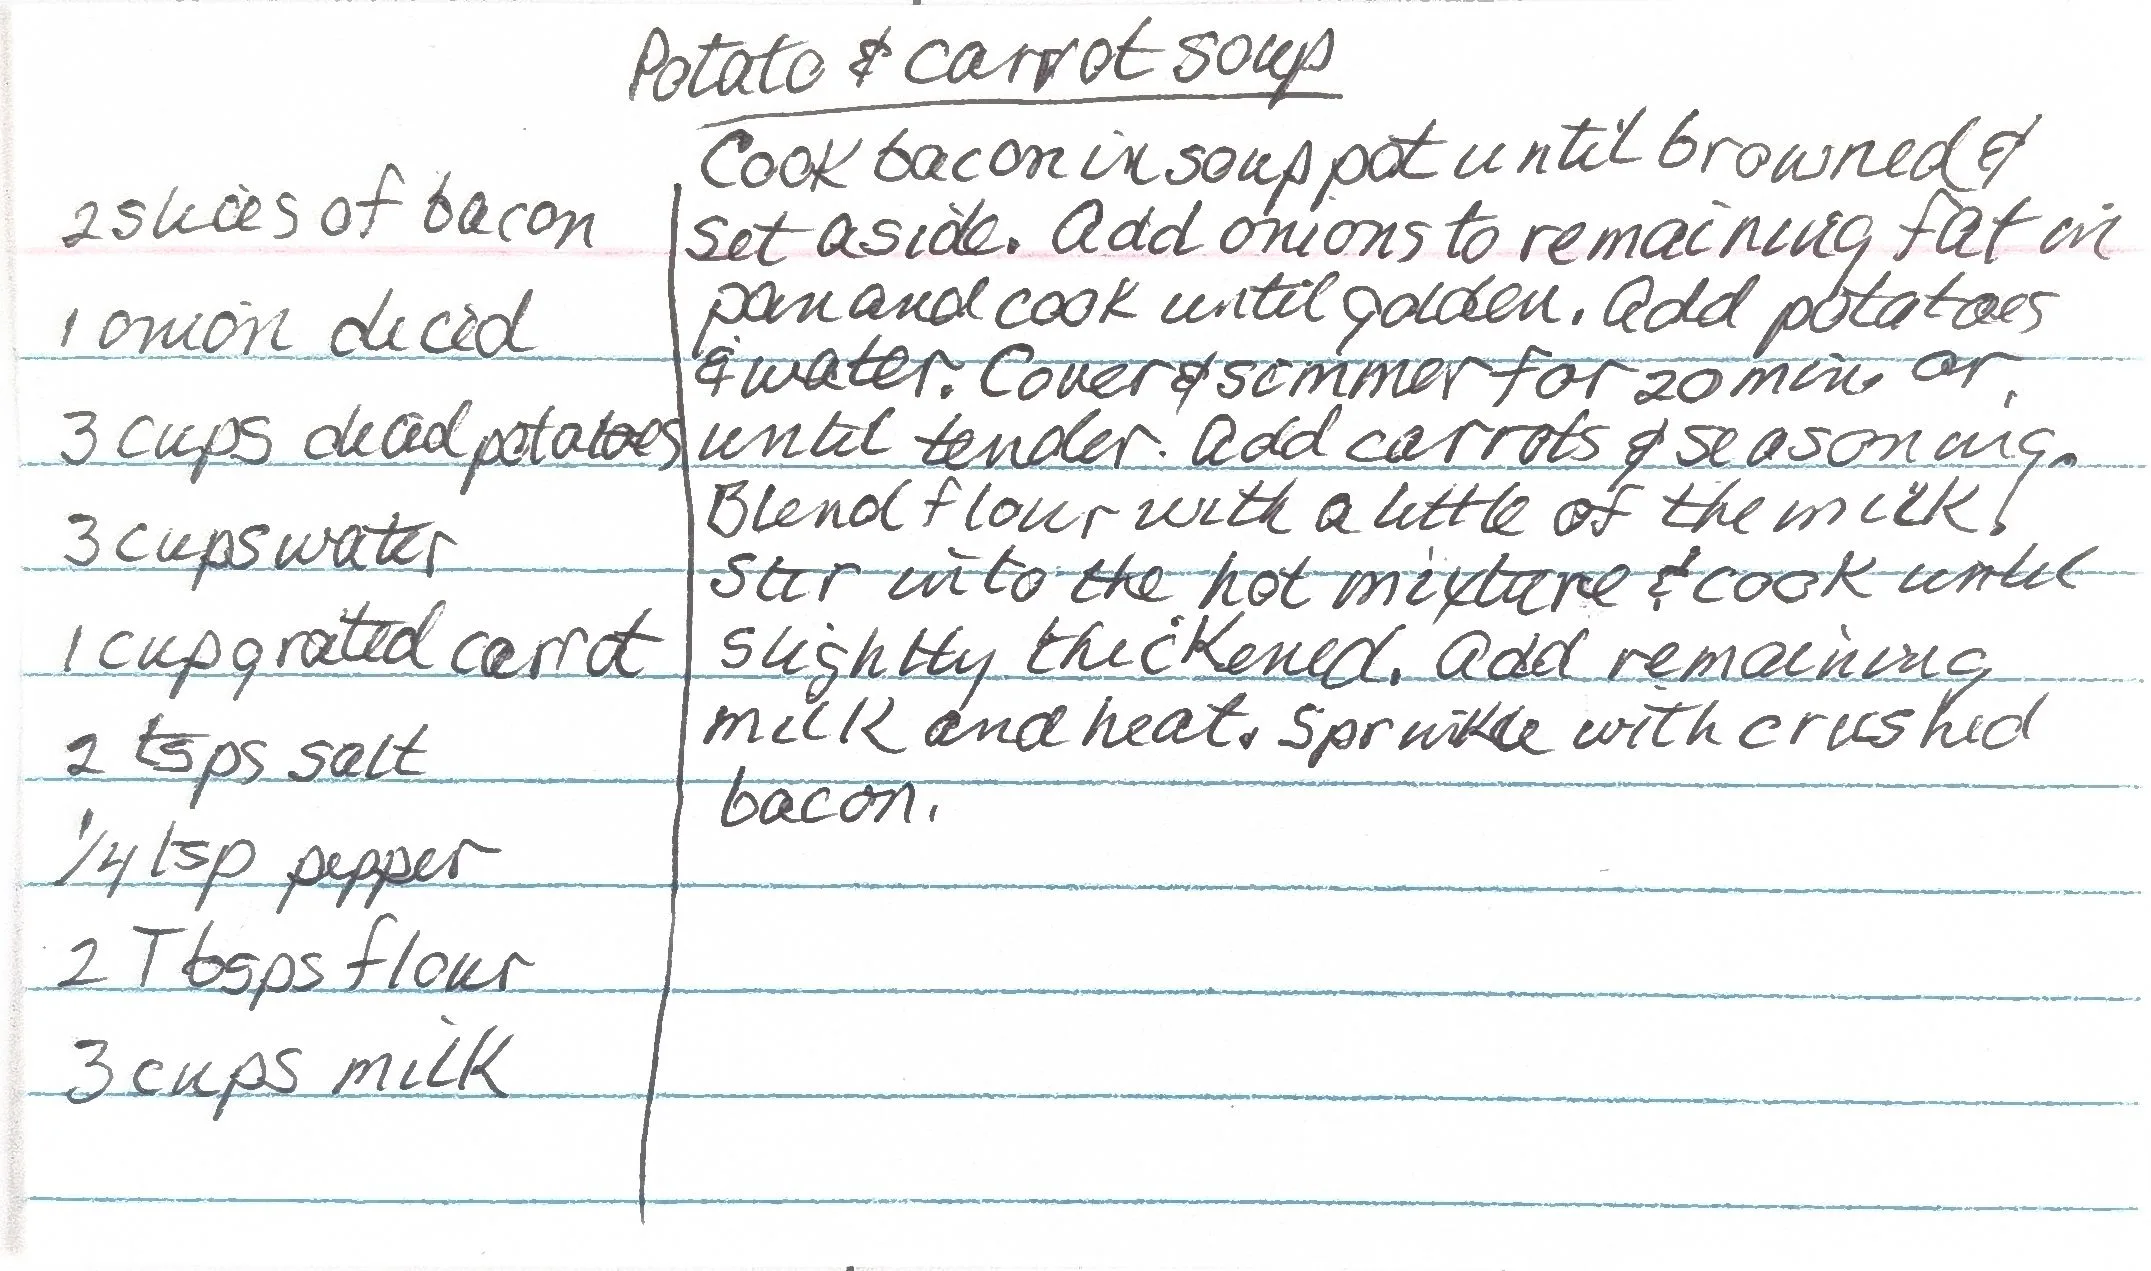 Potato & carrot soup
2 slices of bacon
1 onion diced
3 cups diced potatoes
3 cups water
1 cup grated carrot
2 tsps salt
1/4 tsp pepper
2 Tbsps flour
3 cups milk
Cook bacon in soup pot until browned &
set aside. Add onions to remaining fat in
pan and cook until golden. Add potatoes
& water. Cover & simmer for 20 min. or
until tender. Add carrots & seasoning.
Blend flour with a little of the milk.
Stir into the hot mixture & cook until
slightly thickened. Add remaining
milk and heat. Sprinkle with crushed
bacon.